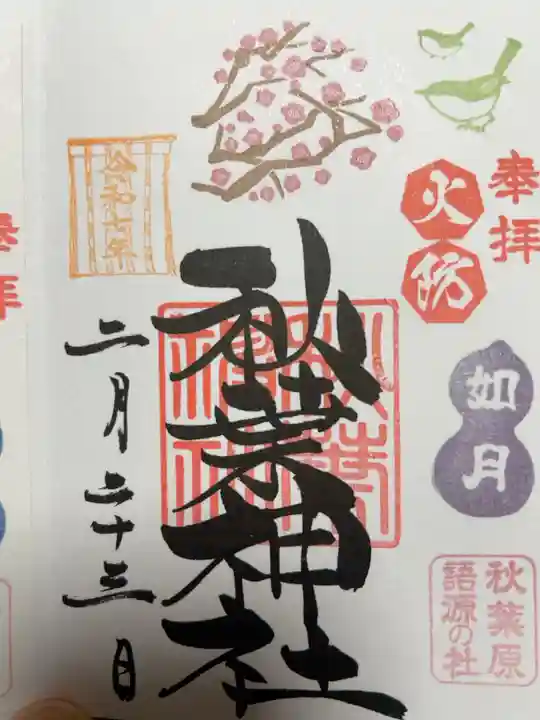 奉拝
火防
如月
秋葉原
語源の社
秋葉神社
令和七年
二月二十三日
奉拝